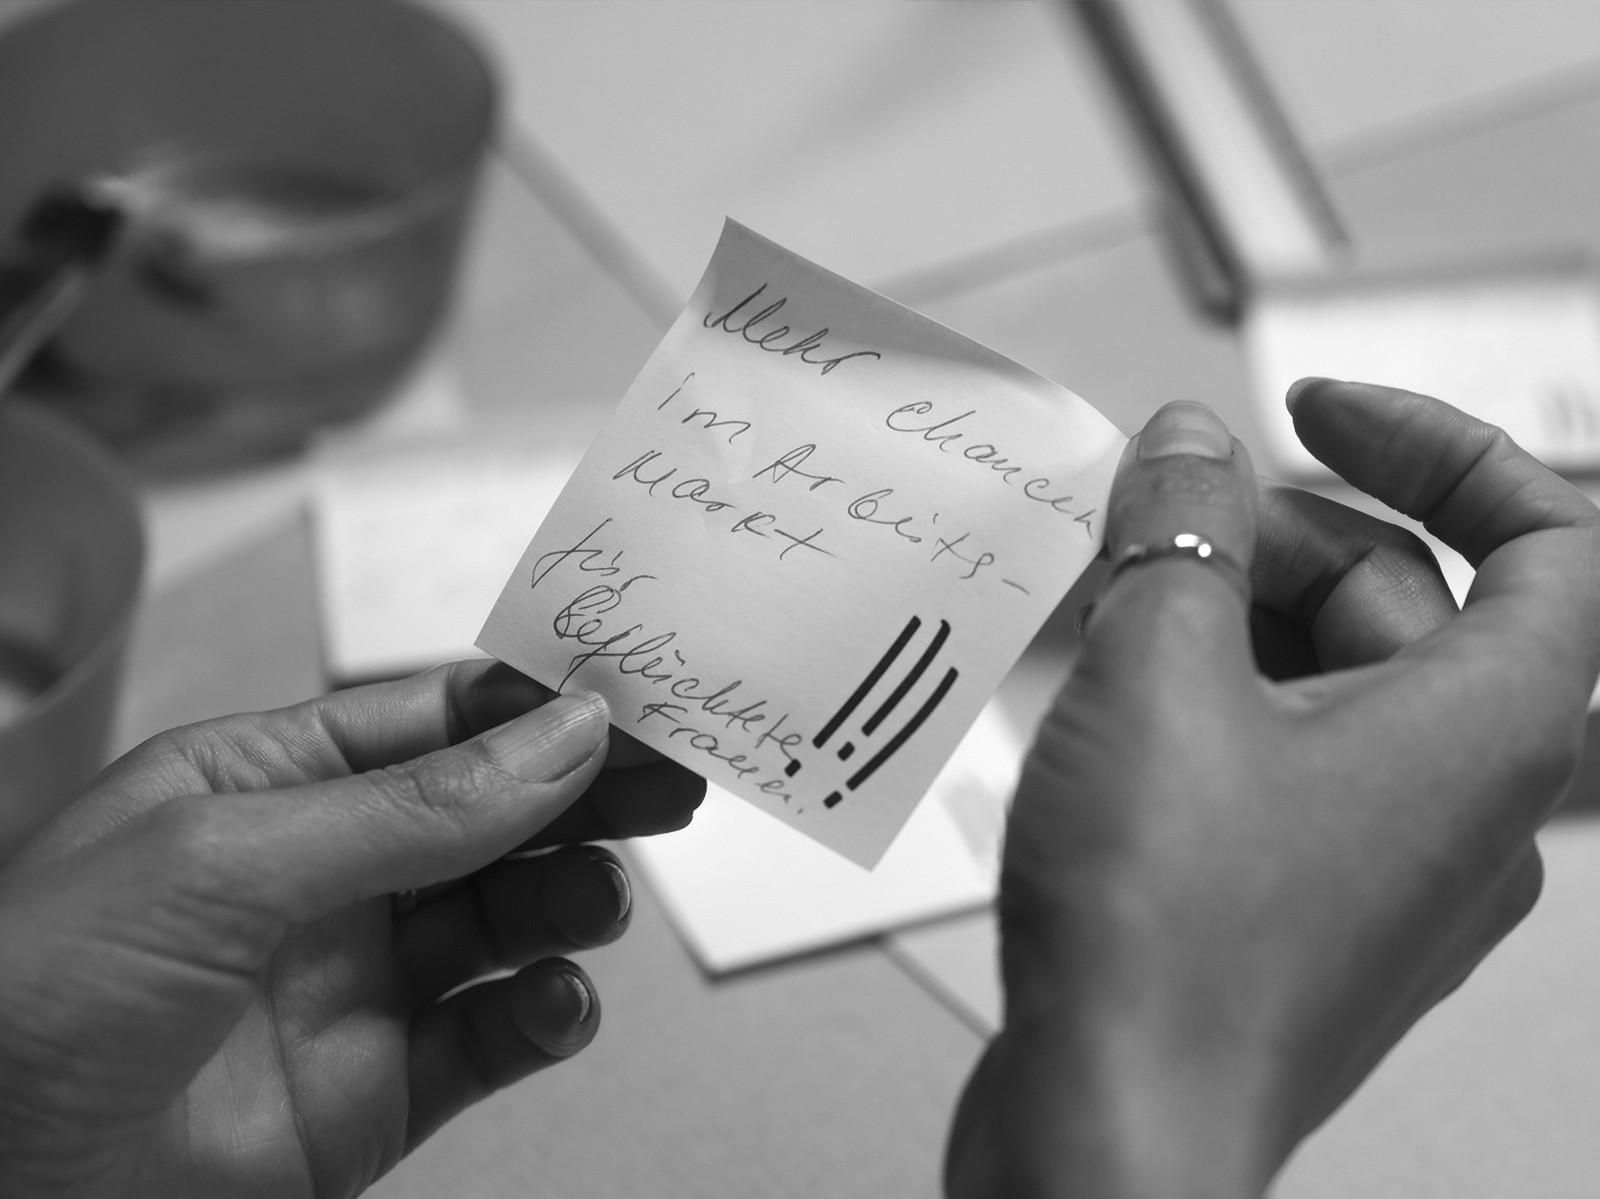 Mehr Chancen
im Arbeits-
Markt
für
Geflüchtete
Frauen.
!!!